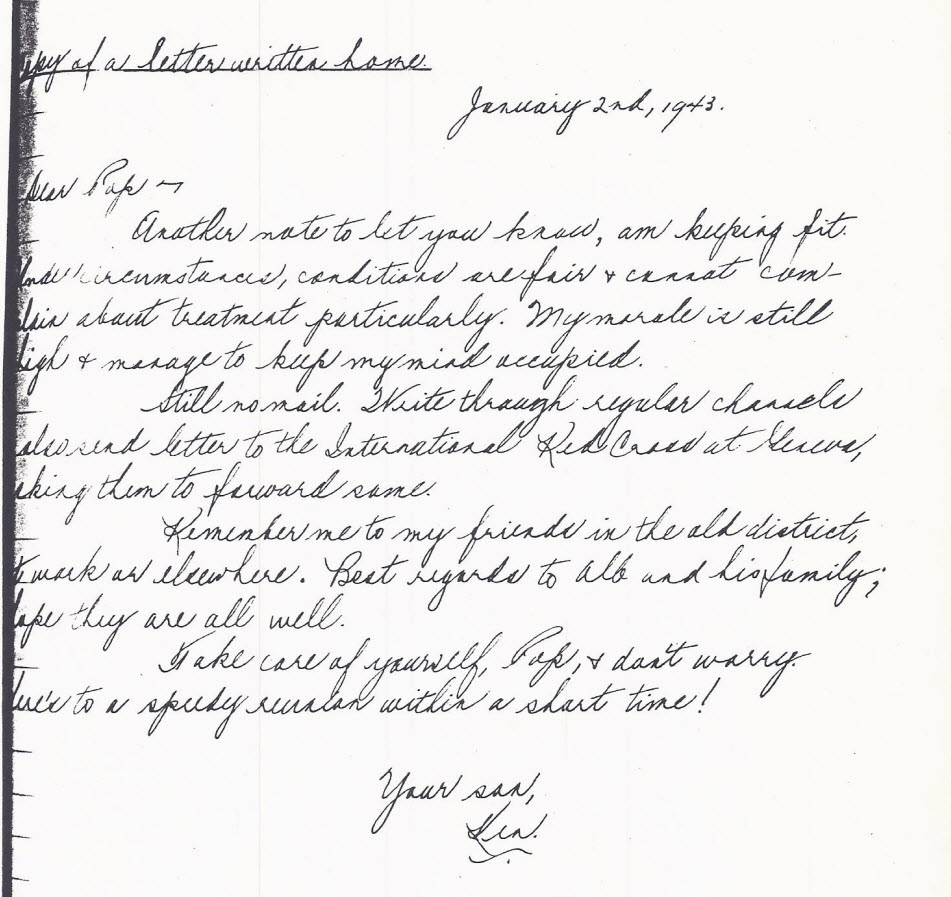 Copy of a letter written home.
January 2nd, 1943.
Dear Pop —
Another note to let you know, am keeping fit.
Under circumstances, conditions are fair & cannot com-
plain about treatment particularly. My morale is still
high & manage to keep my mind occupied.
Still no mail. Write through regular channels
also send letter to the International Red Cross at Geneva,
asking them to forward same.
Remember me to my friends in the old district,
at work or elsewhere. Best regards to Alb and his family;
hope they are all well.
Take care of yourself, Pop, & don't worry.
Here's to a speedy reunion within a short time!
Your son,
Ken.